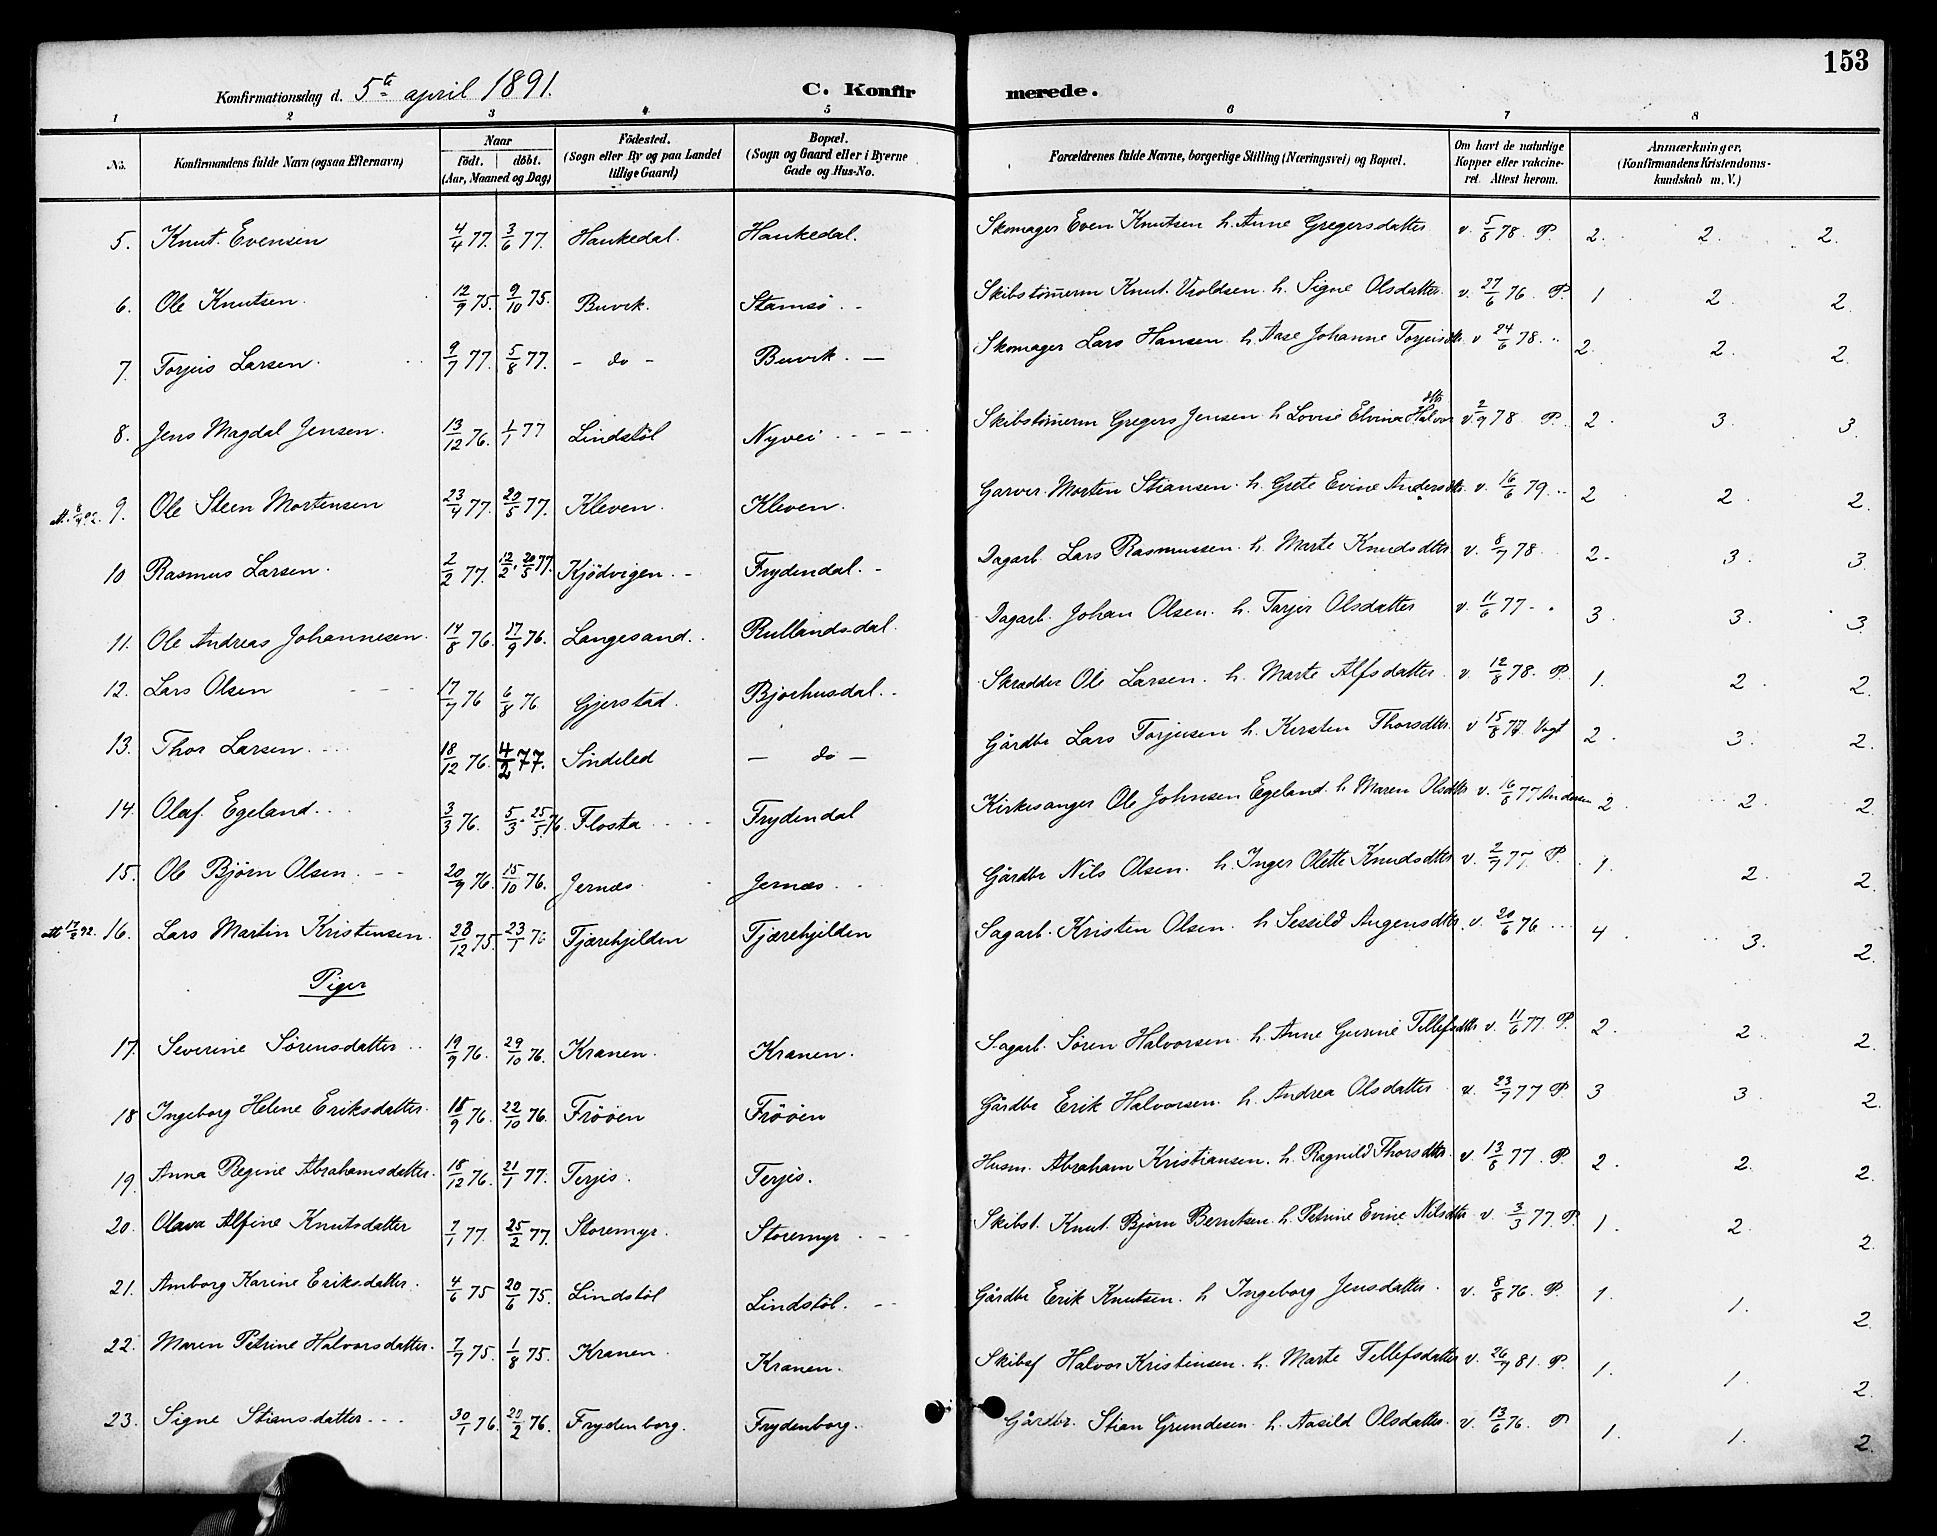 153
Konfirmationsdag d. 5te april 1891. C. Konfirmerede.
1 2 3 4 5 6 7 8
No. Konfirmandens fulde Navn (ogsaa Efternavn) Naar födt. döbt. (Aar, Maaned og Dag) Födested. (Sogn eller By og paa Landet tillige Gaard) Bopæl. (Sogn og Gaard eller i Byerne Gade og Hus-No. Forældrenes fulde Navne, borgerlige Stilling (Næringsvei) og Bopæl. Om havt de naturlige Kopper eller vakcineret. Attest herom. Anmærkninger, (Konfirmandens Kristendomskundskab m. V.)
5. Knut Evensen 4/4 77. 3/6 77. Haukedal. Haukedal. Skomager Even Knutsen h. Anne Gregersdatter v. 5/8 78. P. 2. 2. 2.
6. Ole Knutsen. 12/9 75. 9/10 75. Buvik. Stamsö Skibstömerm Knut Vroldsen. h. Signe Olsdatter. v. 27/6 76. P. 1 2. 2.
7. Torjus Larsen. 9/7 77. 5/8 77. - do - Buvik. Skomager Lars Hansen. h. Aase Johanne Torjusdtr. v. 24/6 78. " 2. 2. 2.
8. Jens Magdal Jensen. 13/12 76. 1/1 77 Lindstöl Nyvei Skibstömerm Gregers Jensen. h. Lovise Elvine Halvorsdtr v. 2/9 78 P. 2. 3. 3.
9. Ole Steen Mortensen 23/4 77. 20/5 77. Kleven. Kleven. Garver. Morten Stiansen. h. Grete Evine Andersdtr. v. 16/6 79. 2 2. 2.
10 Rasmus Larsen. 2/2 77. 12/2, 20/5 77. Kjödvigen. Frydendal. Dagarb. Lars Rasmussen. h. Marte Knudsdtr v. 8/7 78. 2. 3. 3.
11. Ole Andreas Johannesen. 14/8 76. 17/9 76. Langesand. Rullandsdal. Dagarb. Johan Olsen. h. Torjer Olsdatter v. 11/6 77. 3. 3. 3.
12. Lars Olsen 17/7 76 6/8 76 Gjerstad. Bjorhusdal. Skrædder Ole Larsen. h. Marte Alfsdatter. v. 12/8 78. P. 1. 2. 2.
13. Thor Larsen. 18/12 76. 4/2 77. Söndeled - do - Gårdbr Lars Torjusen h. Kirsten Thorsdtr. v 15/8 77. Vogt 2. 3. 2.
14. Olaf Egeland. 3/3 76. 5/3. 25/5 76. Flosta Frydendal Kirkesanger Ole Johnsen Egeland. h. Maren Olsdtr v. 16/8 77 Andersen 2. 2. 2.
15. Ole Bjørn Olsen. 20/9 76. 15/10 76. Jernæs. Jernæs. Gårdbr Nils Olsen. h. Inger Olette Knudsdtr v. 2/7 77. P. 1. 2. 2.
16. Lars Martin Kristensen. 28/12 75. 23/1 76 Tjærehjilden Tjærehjilden Sagarb. Kristen Olsen. h. Sessild Augensdtr. v. 20/6 76 4. 3. 2.
Piger
17. Severine Sörensdatter 19/9 76. 29/10 76. Kranen. Kranen. Sagarb. Sören Halvorsen. h. Anne Gurine Tellefsdtr v. 11/6 77. P. 2. 2. 2.
18 Ingeborg Helene Eriksdatter. 18/9 76. 22/10 76. Frööen Frööen Gårdbr Erik Halvorsen. h. Andrea Olsdatter v. 23/7 77 P. 3 3. 2.
19. Anna Regine Abrahamsdatter. 18/12 76. 21/1 77. Terjis. Terjis. Husm. Abraham Kristiansen. h. Ragnild Thorsdtr. v. 13/8 77. P. 2. 2. 2.
20. Olava Alfine Knutsdatter 7/1 77. 25/2 77. Storemyr. Storemyr Skibst. Knut Bjørn Berntsen. h. Petrine Evine Nilsdtr v. 3/3 77 P. 1. 2. 2.
21. Amborg Karine Eriksdatter. 4/6 75 20/6 75. Lindstöl Lindstöl. Gårdbr Erik Knutsen. h Ingeborg Jensdatter. v. 8/8 76. P. 1. 1. 2.
22. Maren Petrine Halvorsdatter. 7/7 75. 1/8 75. Kranen. Kranen. Skibsf Halvor Kristensen. h. Marte Tellefsdatter v. 26/7 81. P. 1. 1. 2.
23. Signe Stiansdatter 30/1 76. 20/2 76. Frydenborg. Frydenborg. Gårdbr. Stian Grundesen. h. Aasild Olsdatter. v. 13/6 76. P 1. 1. 2.